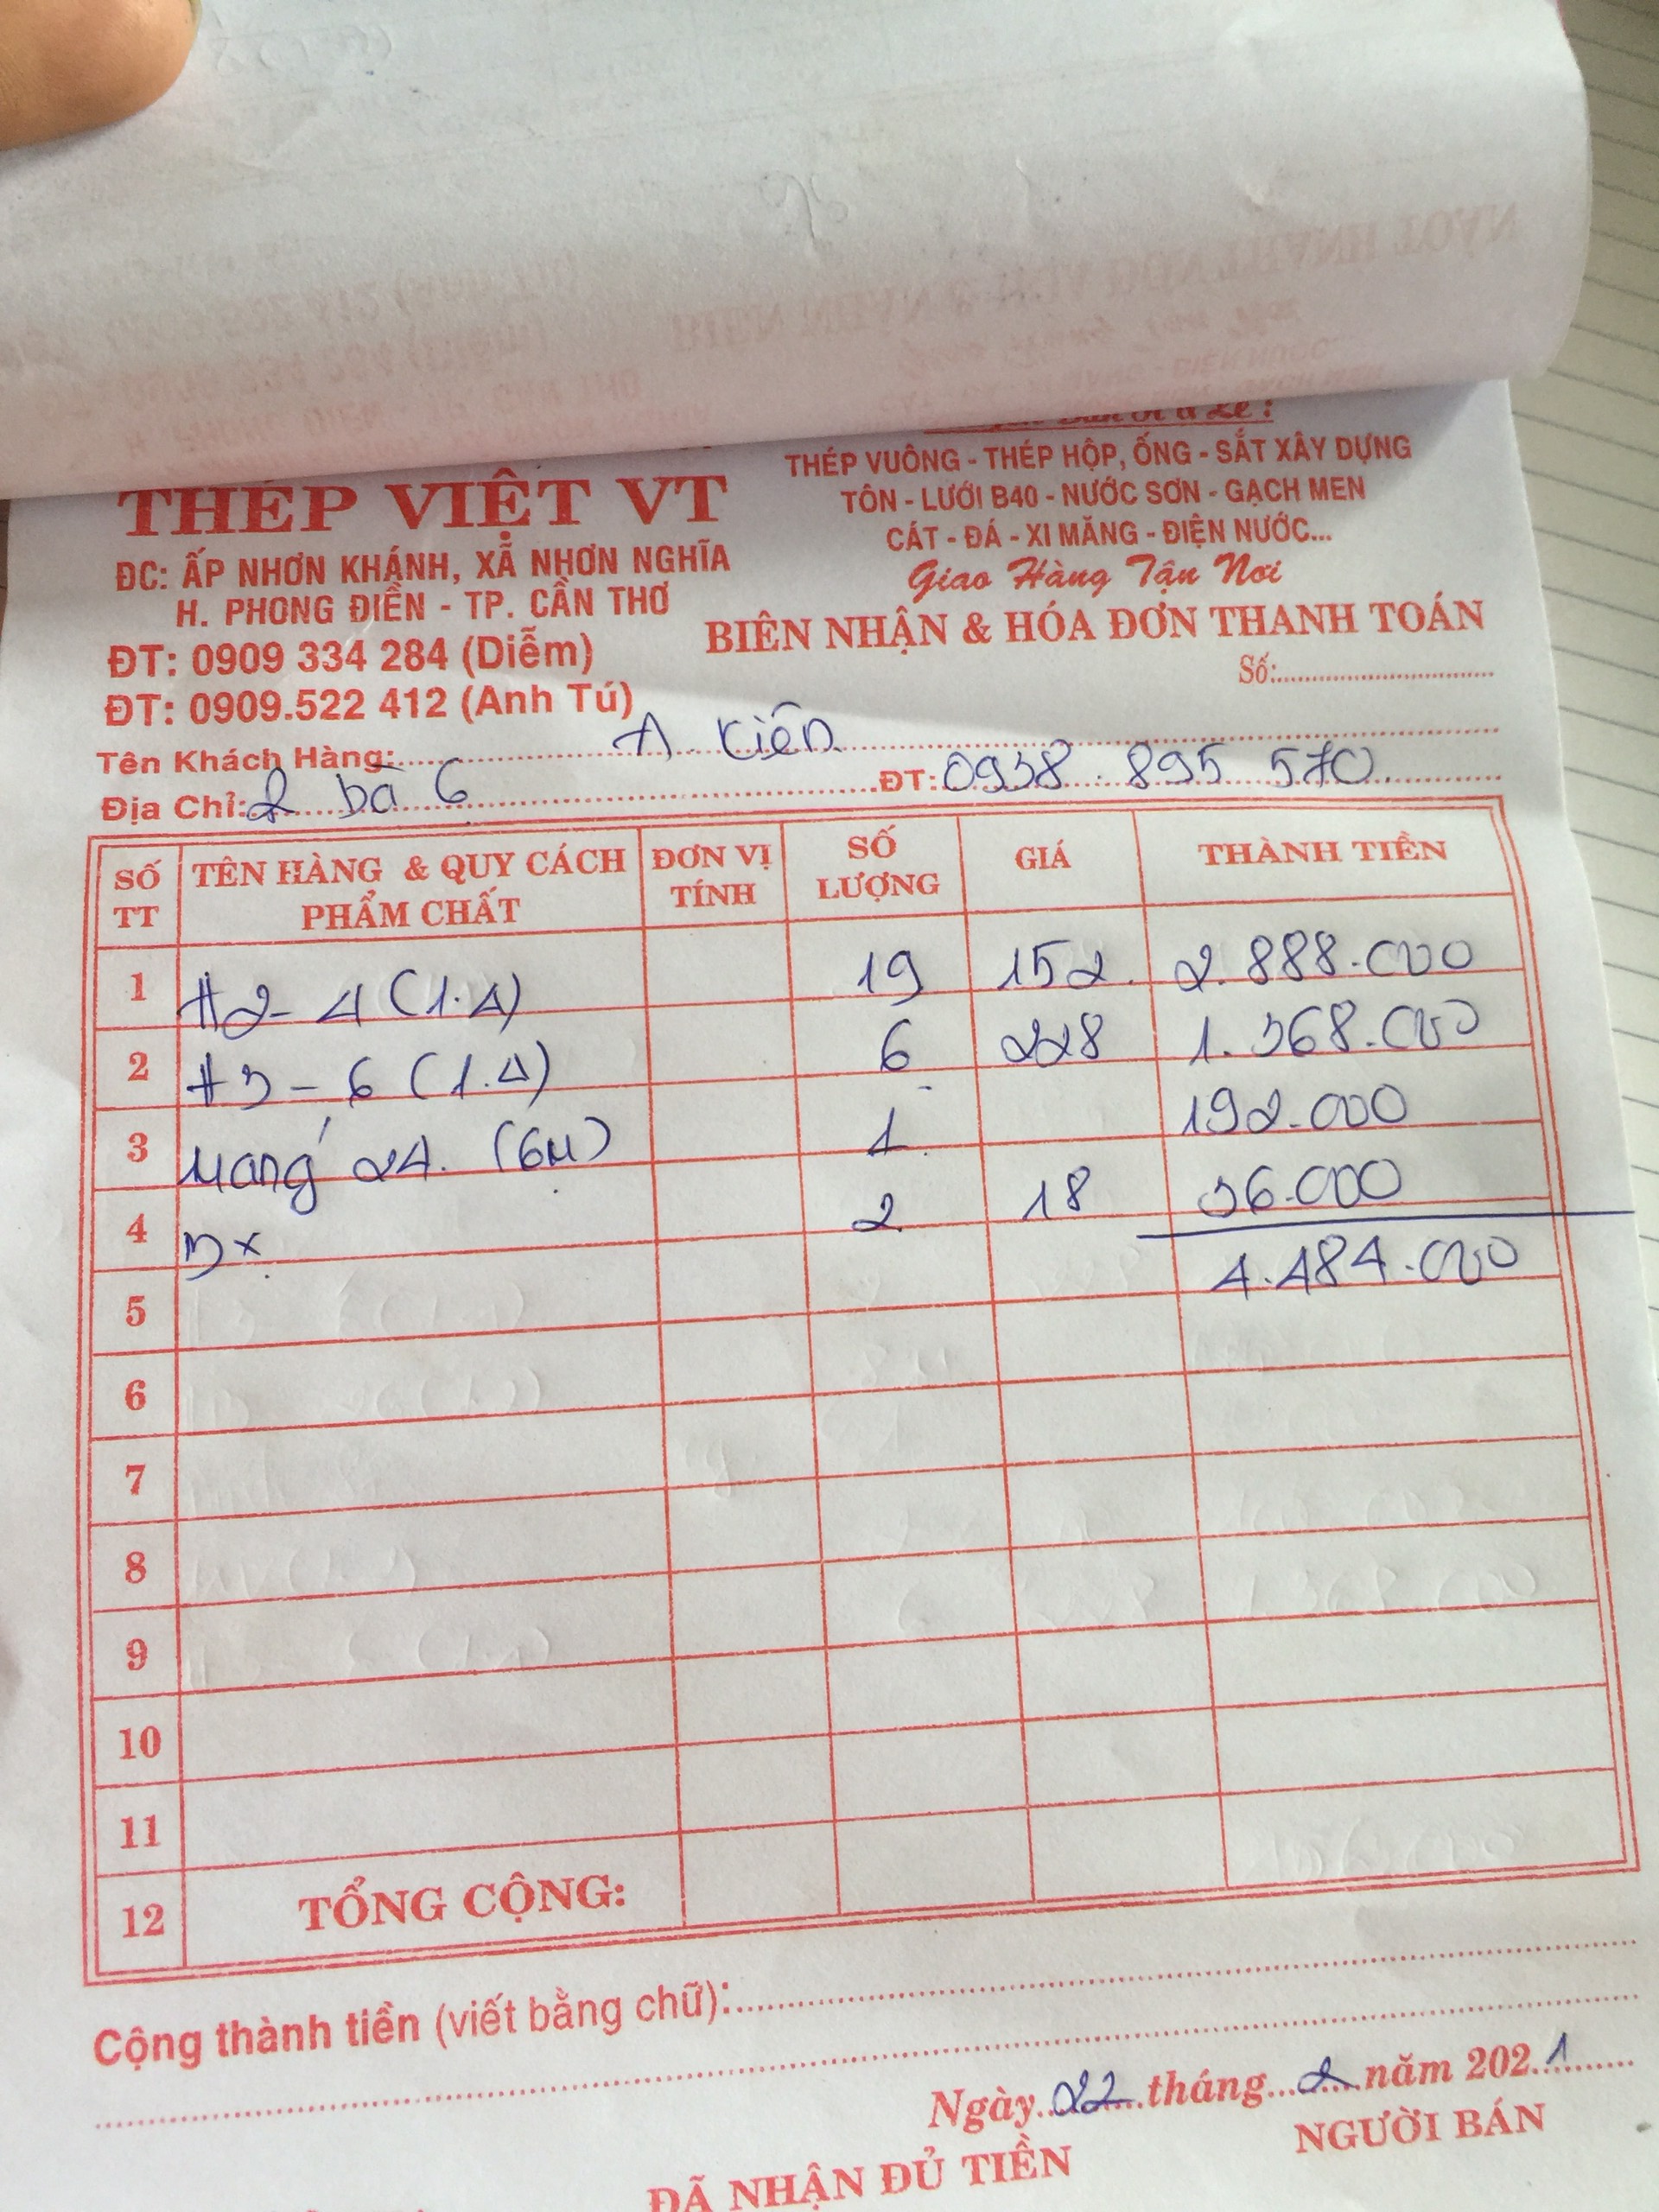 THÉP VIỆT VT
ĐC: ẤP NHƠN KHÁNH, XÃ NHƠN NGHĨA
H. PHONG ĐIỀN - TP. CẦN THƠ
ĐT: 0909 334 284 (Diễm)
ĐT: 0909.522 412 (Anh Tú)
THÉP VUÔNG - THÉP HỘP, ỐNG - SẮT XÂY DỰNG
TÔN - LƯỚI B40 - NƯỚC SƠN - GẠCH MEN
CÁT - ĐÁ - XI MĂNG - ĐIỆN NƯỚC...
Giao Hàng Tận Nơi
BIÊN NHẬN & HÓA ĐƠN THANH TOÁN
Số:
Tên Khách Hàng: A. Kiên
Địa Chỉ: 2 bà 6 ĐT: 0938.895 570.
SỐ TT TÊN HÀNG & QUY CÁCH PHẨM CHẤT ĐƠN VỊ TÍNH SỐ LƯỢNG GIÁ THÀNH TIỀN
1 #2-4 (1.4) 19 152. 2.888.000
2 #3-6 (1.4) 6 228 1.368.000
3 Máng 24. (6M) 1 192.000
4 3x 2 18 36.000
5 4.484.000
6
7
8
9
10
11
12 TỔNG CỘNG:
Cộng thành tiền (viết bằng chữ):
Ngày 22 tháng 2 năm 2021
ĐÃ NHẬN ĐỦ TIỀN NGƯỜI BÁN